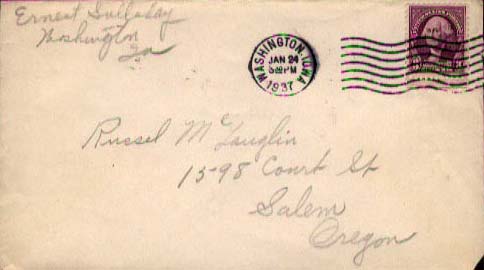 Ernest Sulladay
Washington
Ia
WASHINGTON, IOWA
JAN 24
PM
1937
Russel McLauglin
1598 Court St
Salem
Oregon